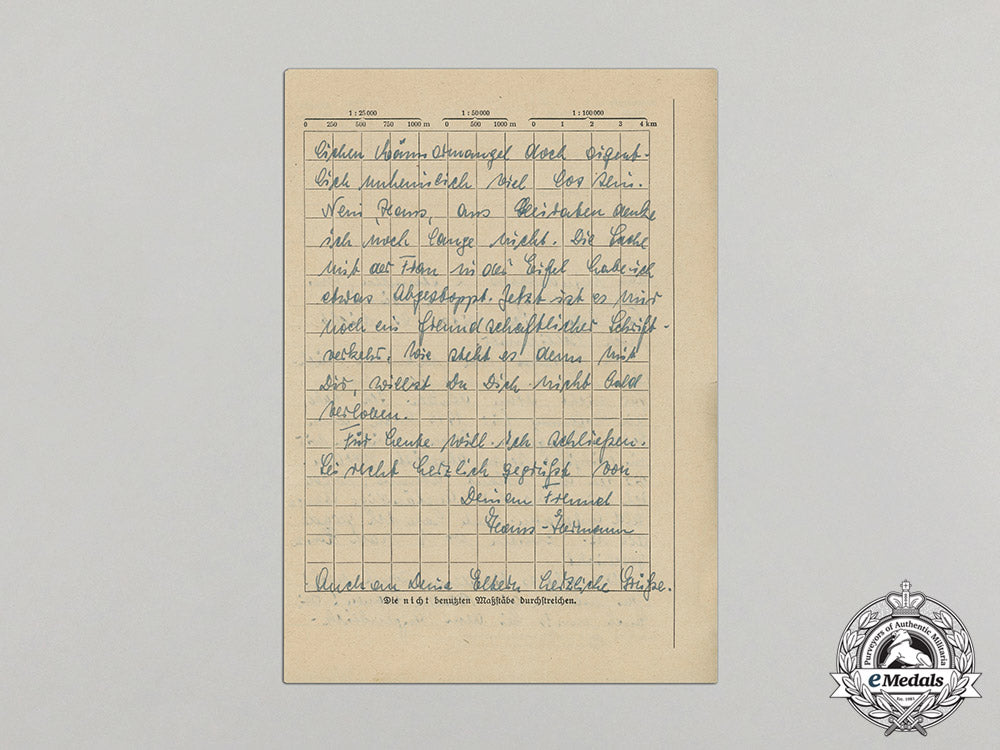 1 : 25000 1 : 50000 1 : 100000
0 250 500 750 1000 m 0 500 1000 m 0 1 2 3 4 km
lichen Männermangel doch eigent-
lich unheimlich viel los sein.
Nein Hans, ans Heiraten denke
ich noch lange nicht. Die Sache
mit der Frau in der Eifel habe ich
etwas abgestoppt. Jetzt ist es nur
noch ein freundschaftlicher Schrift-
verkehr. Wie steht es denn mit
Dir, willst Du Dich nicht bald
verloben.
Für heute will ich schließen.
Sei recht herzlich gegrüßt von
Deinem Freund
Hans-Hermann
Auch an Deine Eltern herzliche Grüße.
Die nicht benutzten Maßstäbe durchstreichen.
Purveyors of Authentic Militaria
eMedals
Est. 1985